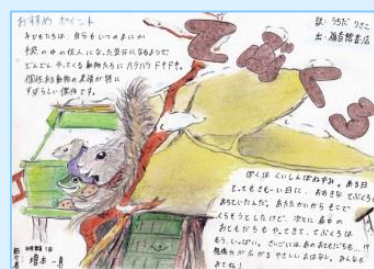 おすすめ ポイント
子どもたちは、自らもいつのまにか
絵の中の住人になった気分になるようで
どんどんやってくる動物たちにハラハラドキドキ。
個性ある動物の表情が特に
すばらしい傑作です。
てぶくろ
訳：うちだ りさこ
出：福音館書店
ぼくは くいしんぼねずみ。ある日
とってもさむい日に、おおきな てぶくろが
おちていたんだ。あたたかいから そこで
くらそうとしたけど、次々に 森の
おともだちも やってきて、てぶくろは
もう、いっぱい。さいごには、あのおともだちも…!?
想像力が広がる やさしいえほんだよ。みんなも
みてね！